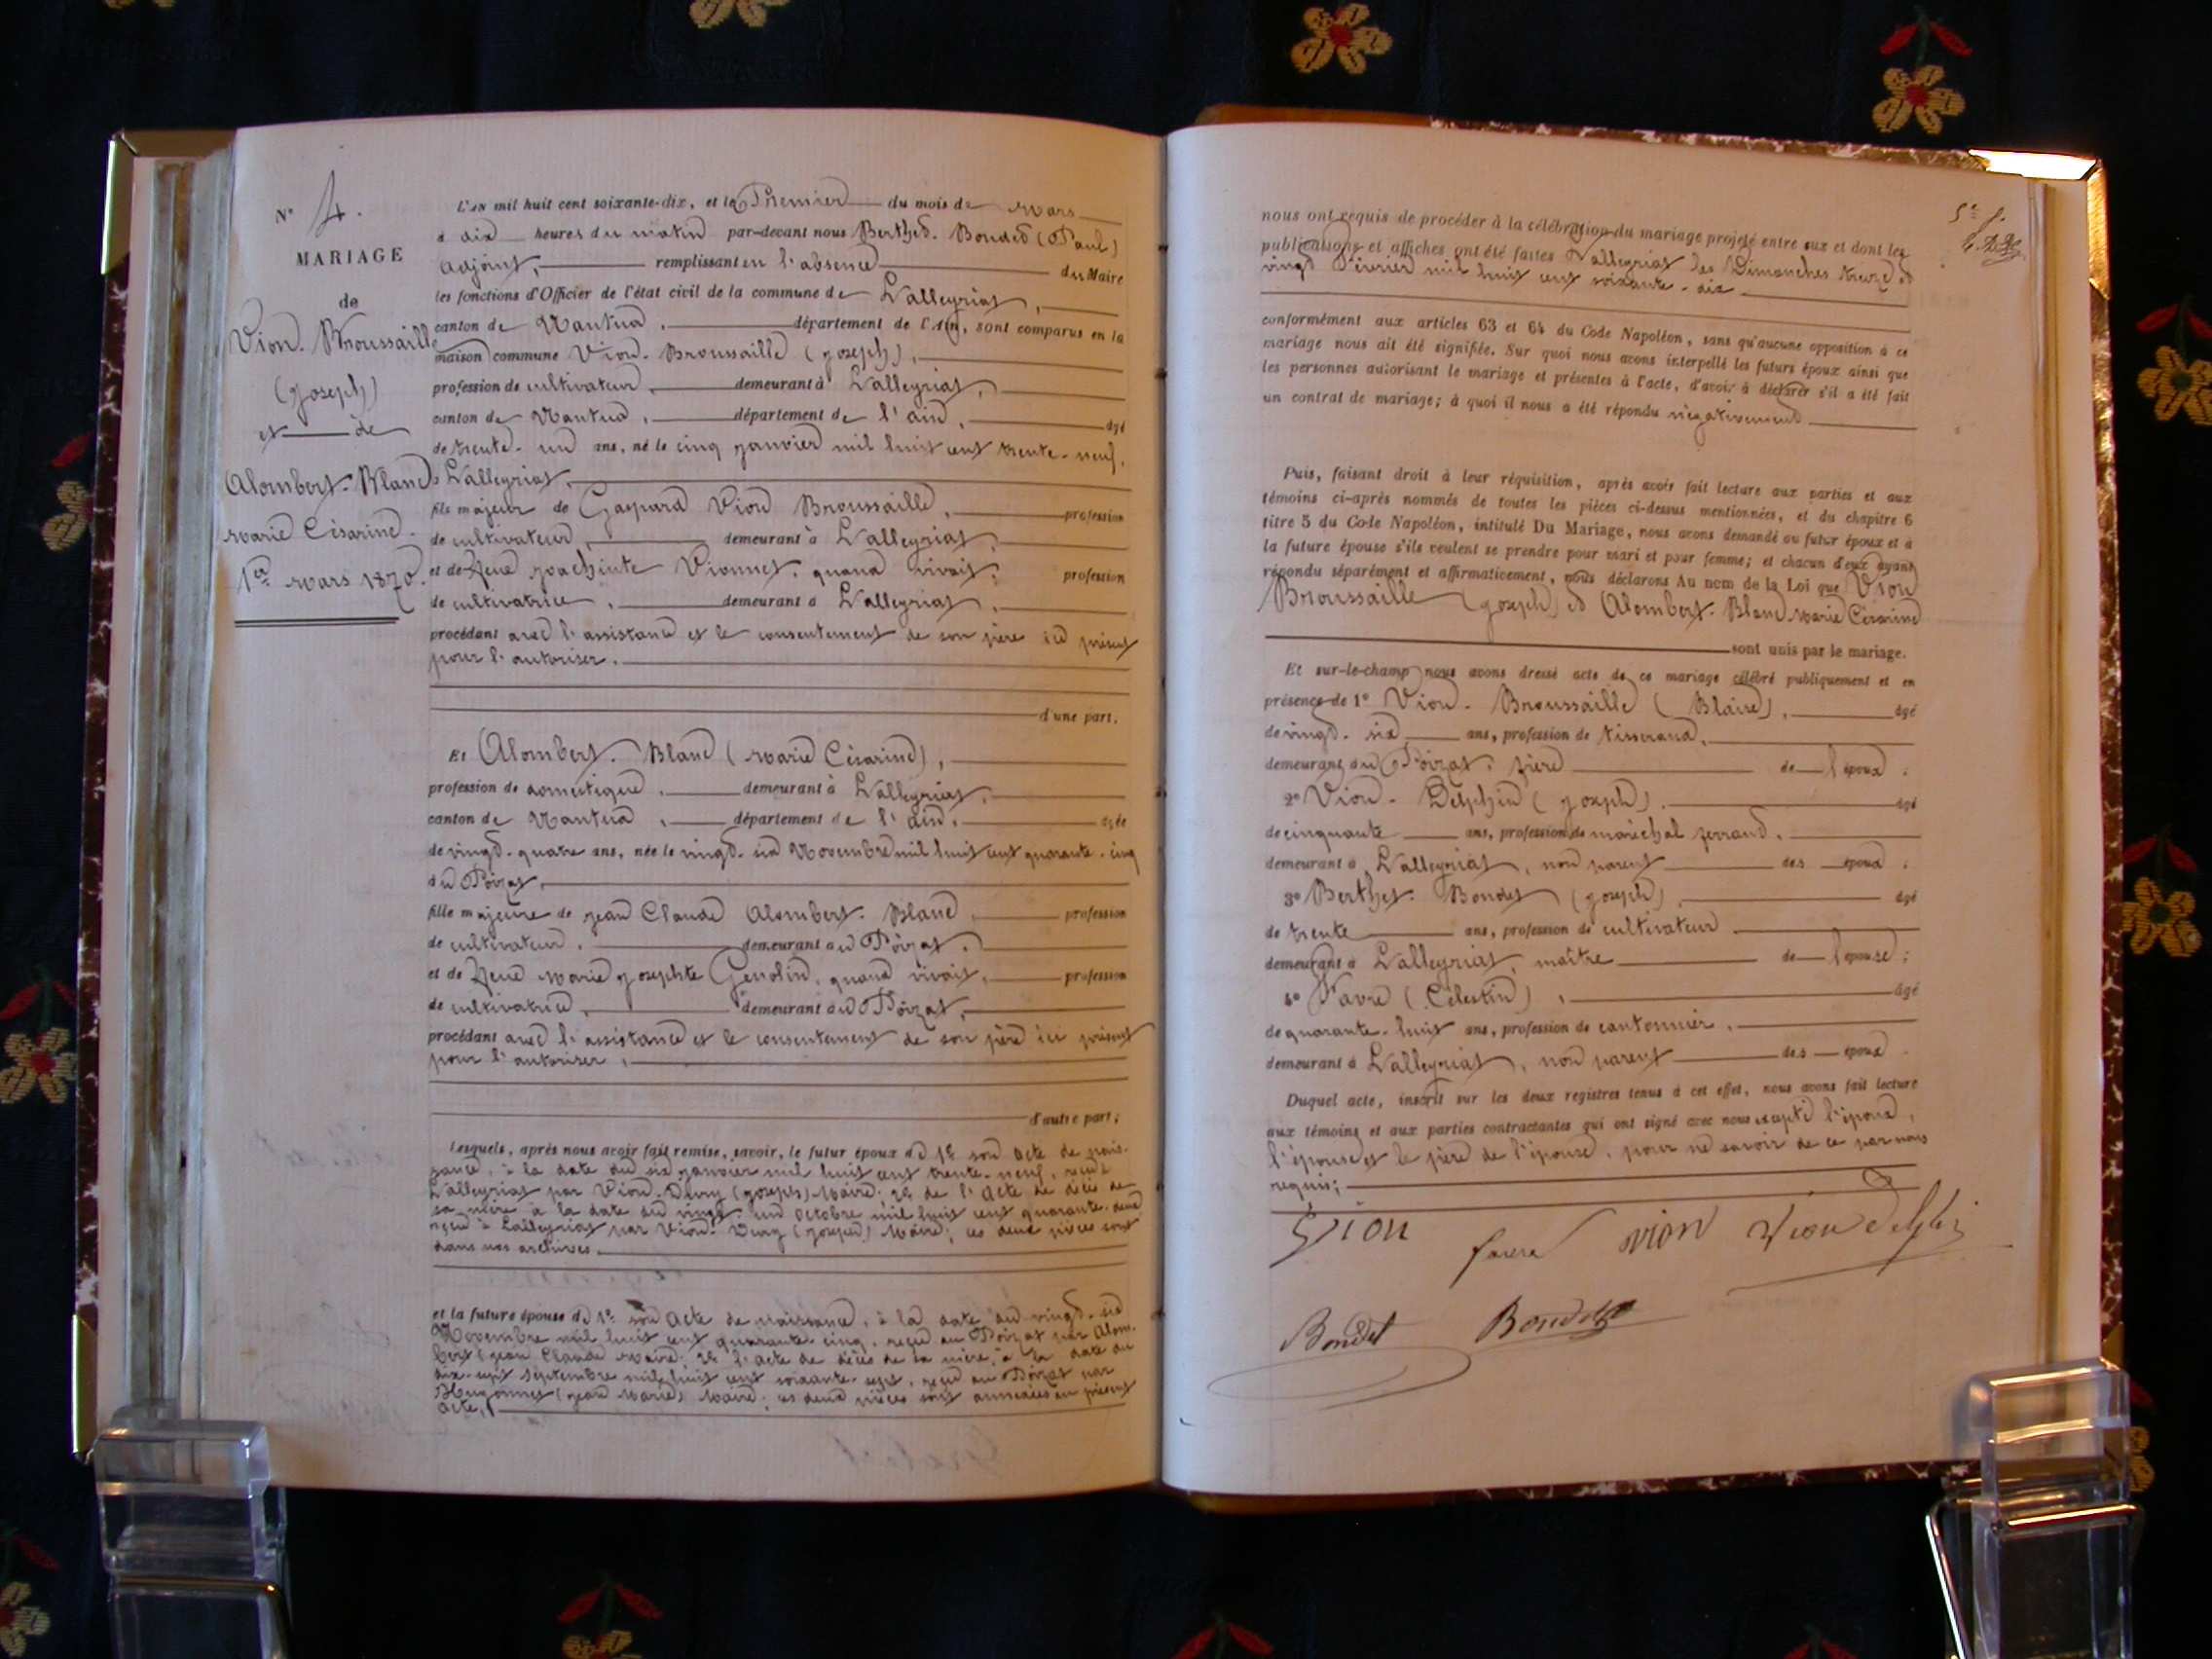 N° 4.
MARIAGE
de
Vion. Broussaille
(Joseph)
et de
Alombert. Blanc
Marie Césarine.
1er Mars 1870.
L'AN mil huit cent soixante-dix, et le Premier du mois de Mars
à dix heures du matin par-devant nous Berthet. Bondet (Paul)
adjoint, remplissant en l'absence du Maire
les fonctions d'Officier de l'état civil de la commune de Lalleyriat,
canton de Nantua, département de l'Ain, sont comparus en la
maison commune Vion. Broussaille (Joseph),
profession de cultivateur, demeurant à Lalleyriat,
canton de Nantua, département de l'ain, âgé
de trente-un ans, né le cinq Janvier mil huit cent trente-neuf,
à Lalleyriat,
fils majeur de Gaspard Vion Broussaille, profession
de cultivateur, demeurant à Lalleyriat,
et de feue Joachinte Vionnet, quand vivait, profession
de cultivatrice, demeurant à Lalleyriat,
procédant avec l'assistance et le consentement de son père ici présent
pour l'autoriser.
d'une part.
Et Alombert. Blanc (Marie Césarine),
profession de domestique, demeurant à Lalleyriat,
canton de Nantua, département de l'ain, âgée
de vingt-quatre ans, née le vingt-six Novembre mil huit cent quarante-cinq
au Poizat,
fille majeure de Jean Claude Alombert. Blanc, profession
de cultivateur, demeurant au Poizat,
et de feue Marie Josephte Genolin, quand vivait, profession
de cultivatrice, demeurant au Poizat,
procédant avec l'assistance et le consentement de son père ici présent
pour l'autoriser,
d'autre part;
Lesquels, après nous avoir fait remise, savoir, le futur époux de 1° son acte de nais-
sance, à la date du six Janvier mil huit cent trente-neuf, reçu à
Lalleyriat par Vion. Duray (Joseph) Maire; 2° de l'acte de décès de
sa mère à la date du vingt-un Octobre mil huit cent quarante-deux
reçu à Lalleyriat par Vion. Duray (Joseph) Maire; ces deux pièces sont
dans nos archives.
et la future épouse de 1° son acte de naissance, à la date du vingt-six
Novembre mil huit cent quarante cinq, reçu au Poizat par Alom-
bert (Jean Claude Maire; 2° l'acte de décès de sa mère, à la date du
dix-sept Septembre mil huit cent soixante-sept, reçu au Poizat par
Hugonnet (Jean Marie) Maire; ces deux pièces sont annexées au présent
acte,
nous ont requis de procéder à la célébration du mariage projeté entre eux et dont les
publications et affiches ont été faites à Lalleyriat les Dimanches treize et
vingt Février mil huit cent soixante-dix
conformément aux articles 63 et 64 du Code Napoléon, sans qu'aucune opposition à ce
mariage nous ait été signifiée. Sur quoi nous avons interpellé les futurs époux ainsi que
les personnes autorisant le mariage et présentes à l'acte, d'avoir à déclarer s'il a été fait
un contrat de mariage; à quoi il nous a été répondu négativement
Puis, faisant droit à leur réquisition, après avoir fait lecture aux parties et aux
témoins ci-après nommés de toutes les pièces ci-dessus mentionnées, et du chapitre 6
titre 5 du Code Napoléon, intitulé Du Mariage, nous avons demandé au futur époux et à
la future épouse s'ils veulent se prendre pour mari et pour femme; et chacun d'eux ayant
répondu séparément et affirmativement, nous déclarons Au nom de la Loi que Vion
Broussaille (Joseph) et Alombert. Blanc Marie Césarine
sont unis par le mariage.
Et sur-le-champ nous avons dressé acte de ce mariage célébré publiquement et en
présence de 1° Vion. Broussaille (Blaise), âgé
de vingt-six ans, profession de tisserand,
demeurant au Poizat, frère de l'époux.
2° Vion. Delphin (Joseph), âgé
de cinquante ans, profession de maréchal ferrand,
demeurant à Lalleyriat, non parent des époux;
3° Berthet. Bondet (Joseph), âgé
de trente ans, profession de cultivateur
demeurant à Lalleyriat, maître de l'épouse;
4° Favre (Célestin), âgé
de quarante-huit ans, profession de cantonnier,
demeurant à Lalleyriat, non parent des époux.
Duquel acte, inscrit sur les deux registres tenus à cet effet, nous avons fait lecture
aux témoins et aux parties contractantes qui ont signé avec nous excepté l'époux,
l'épouse et le père de l'épouse, pour ne savoir de ce par nous
requis;
Vion favre vion Vion delphin
Bondet Bondet